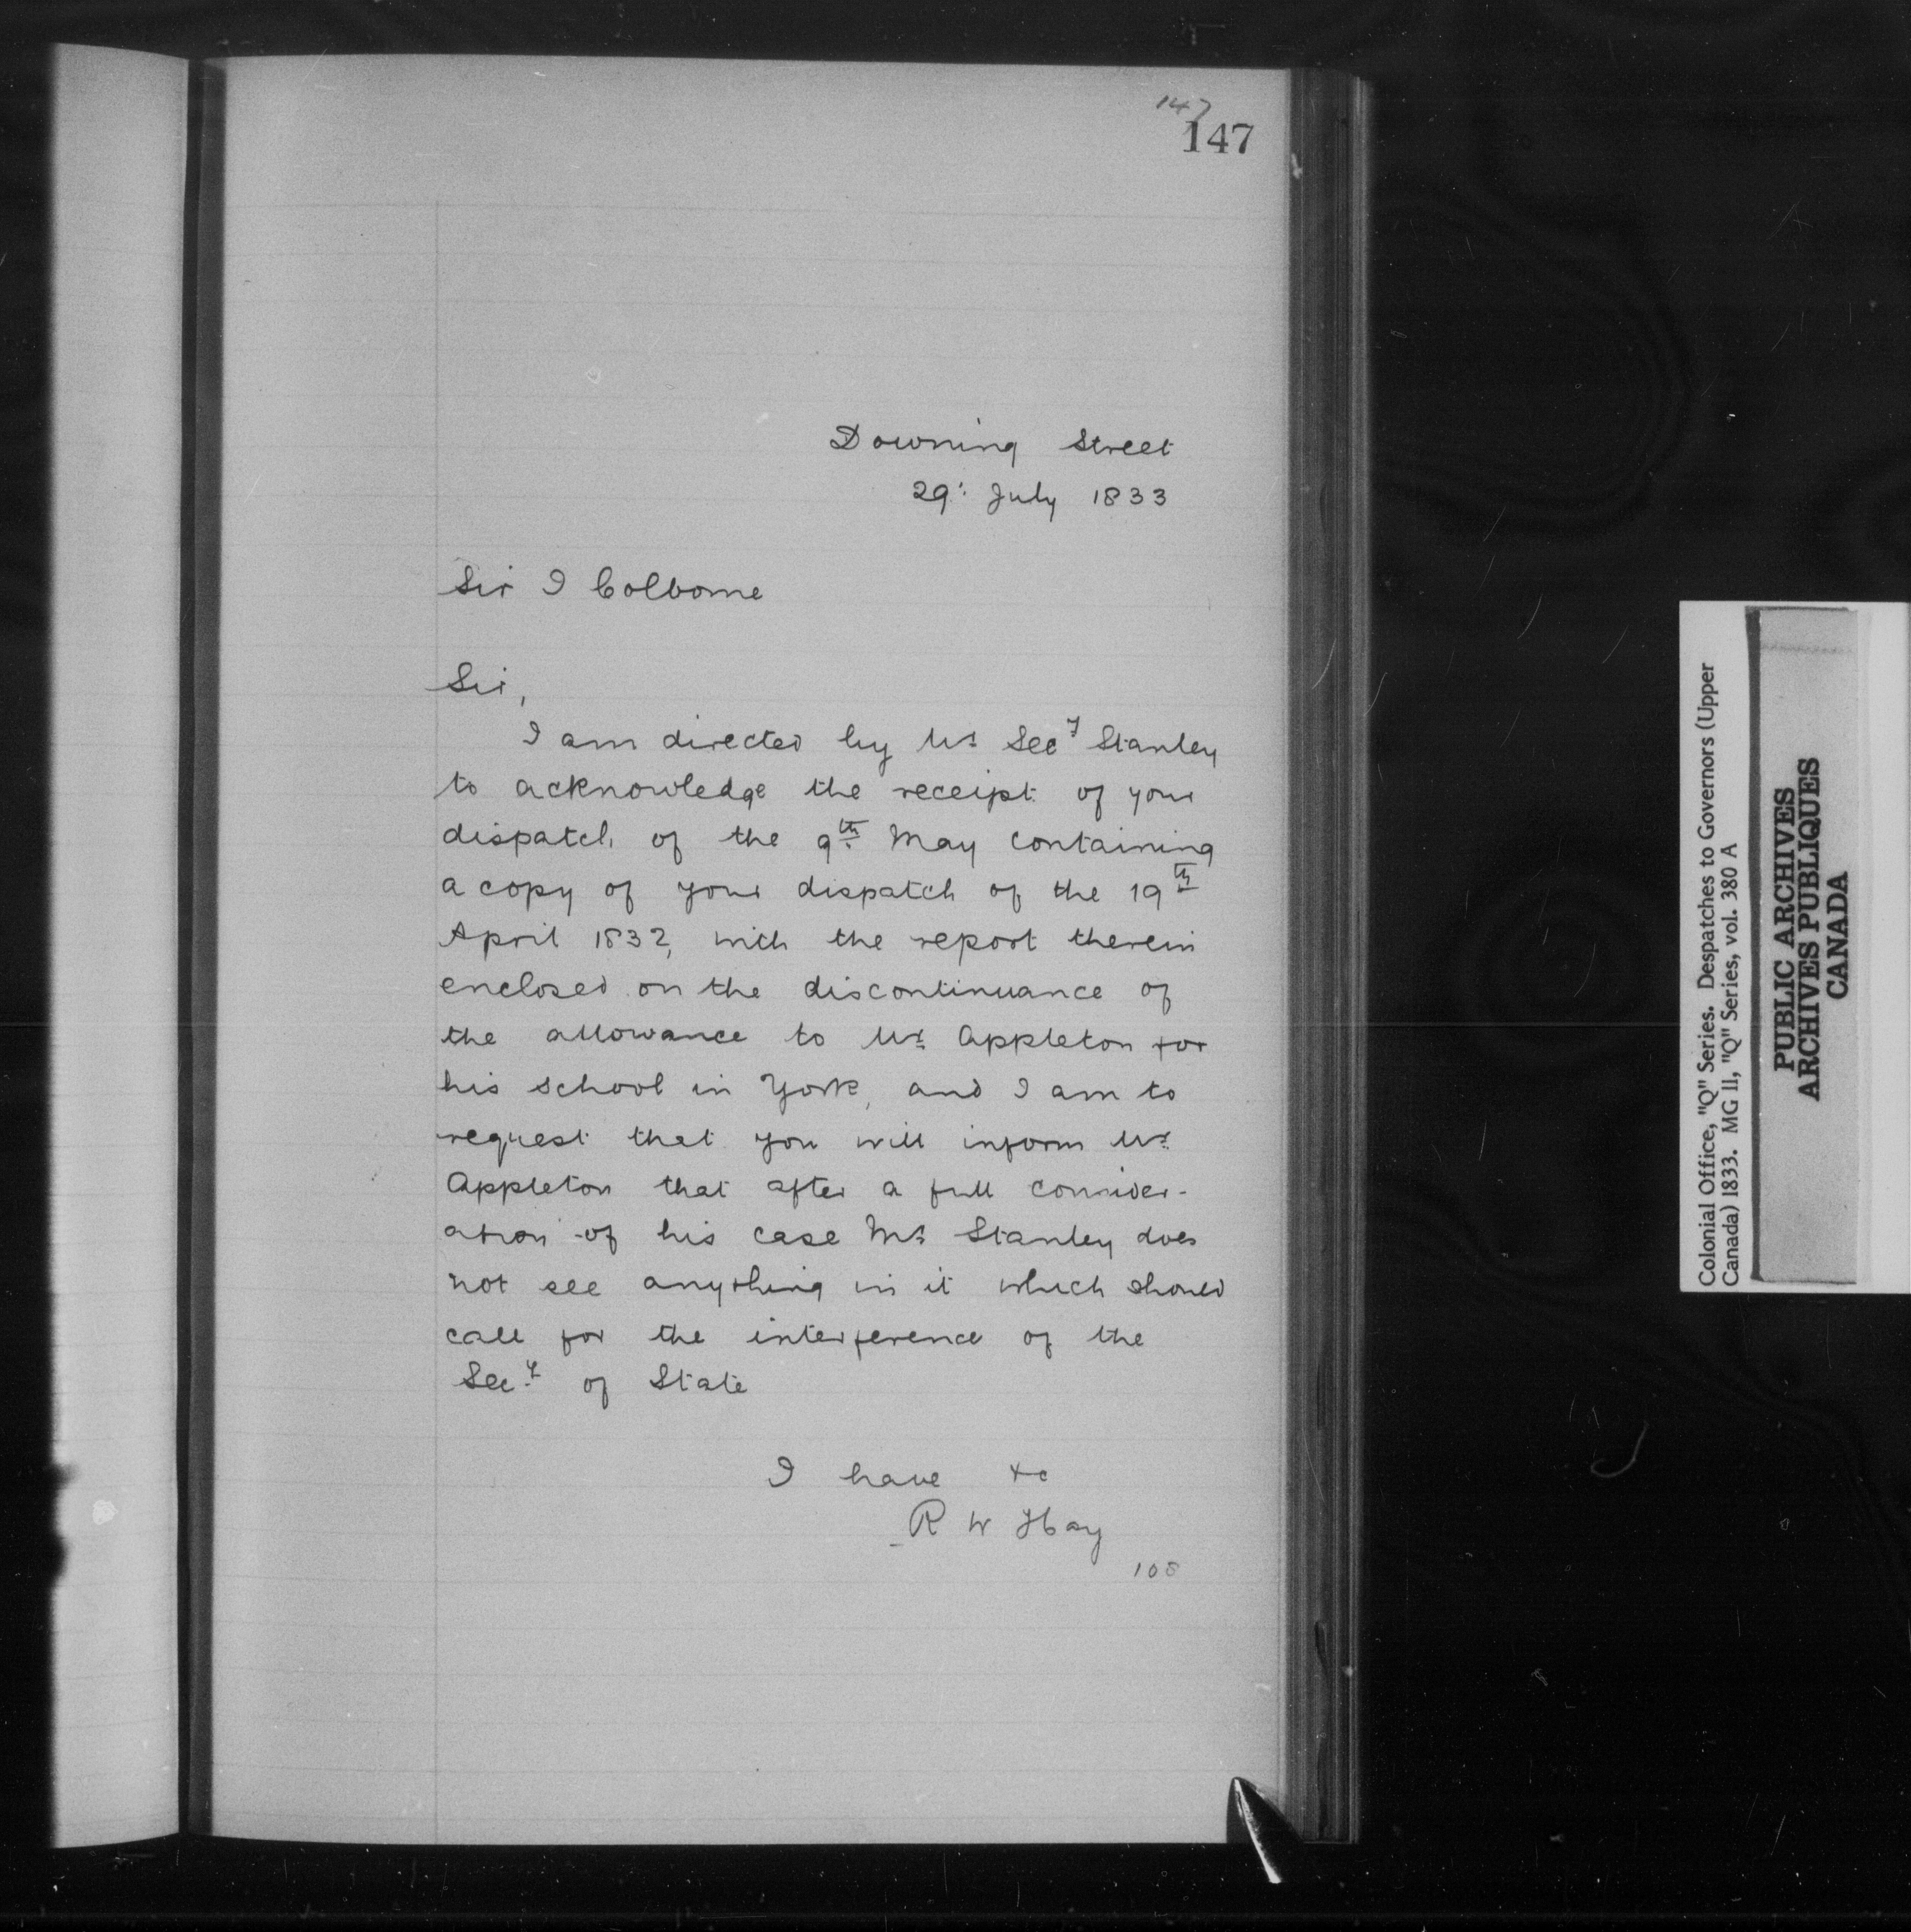 147
147
Downing Street
29: July 1833
Sir J Colborne
Sir,
I am directed by Mr Secy Stanley
to acknowledge the receipt of your
dispatch of the 9th May containing
a copy of your dispatch of the 19th
April 1832, with the report therein
enclosed on the discontinuance of
the allowance to Mr Appleton for
his school in York, and I am to
request that you will inform Mr
Appleton that after a full consider-
ation of his case Mr Stanley does
not see anything in it which should
call for the interference of the
Secy of State
I have &c
R W Hay
108
Colonial Office, "Q" Series. Despatches to Governors (Upper
Canada) 1833. MG 11, "Q" Series, vol. 380 A
PUBLIC ARCHIVES
ARCHIVES PUBLIQUES
CANADA